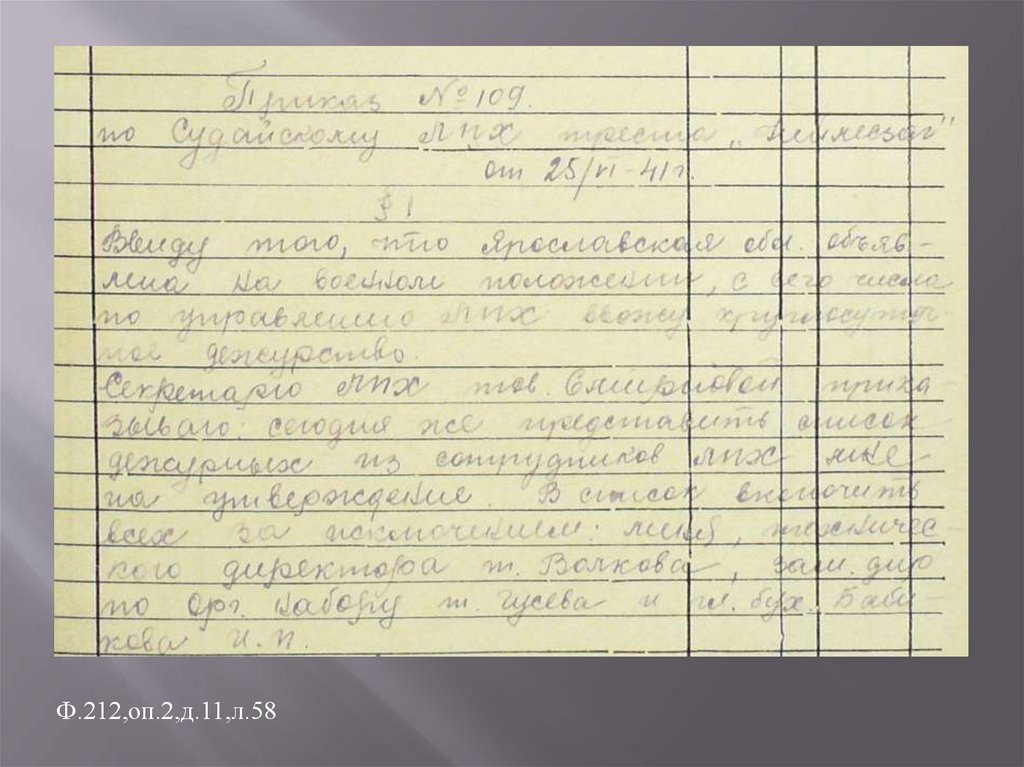 Приказ № 109.
по Судайскому ЛПХ треста „
от 25/VI-41г.
§ 1
Ввиду того, что Ярославская обл. объяв-
лена на военном положении, с сего числа
по управлению ЛПХ ввожу круглосуточ-
ное дежурство.
Секретарю ЛПХ тов. Смирновой прика-
зываю: сегодня же представить список
дежурных из сотрудников ЛПХ мне
на утверждение. В список включить
всех за исключением: меня, техничес-
кого директора т. Волкова, зам. дир.
по орг. набору т. Гусева и гл. бух. Баби-
кова И.П.
Ф.212,оп.2,д.11,л.58